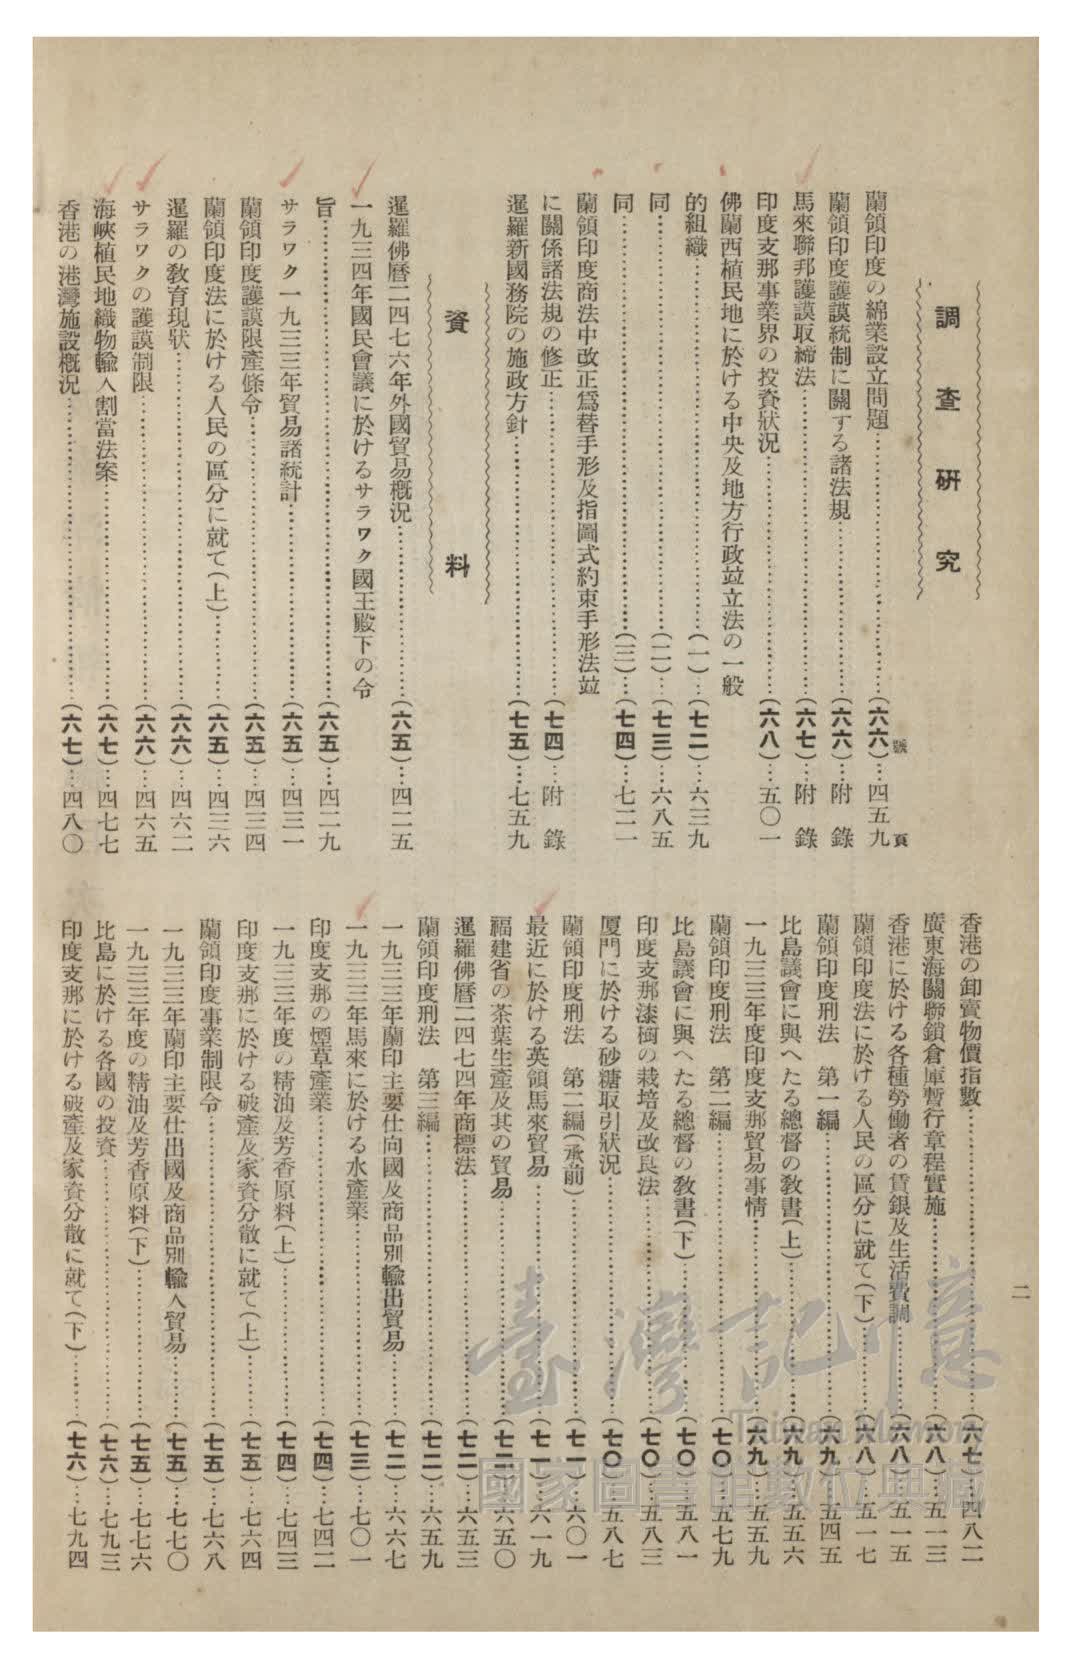 二
調查研究
號 頁
蘭領印度の綿業設立問題……………(六六)…四五九
蘭領印度護謨統制に關する諸法規……………(六六)…附 錄
馬來聯邦護謨取締法……………(六七)…附 錄
印度支那事業界の投資狀況……………(六八)…五〇一
佛蘭西植民地に於ける中央及地方行政竝立法の一般
的組織……………(一)…(七二)…六三九
同……………(二)…(七三)…六八五
同……………(三)…(七四)…七二一
蘭領印度商法中改正爲替手形及指圖式約束手形法竝
に關係諸法規の修正……………(七四)…附 錄
暹羅新國務院の施政方針……………(七五)…七五九
資料
暹羅佛曆二四七六年外國貿易概況……………(六五)…四二五
一九三四年國民會議に於けるサラワク國王殿下の令
旨……………(六五)…四二九
サラワク一九三三年貿易諸統計……………(六五)…四三一
蘭領印度護謨限產條令……………(六五)…四三四
蘭領印度法に於ける人民の區分に就て(上)……………(六五)…四三六
暹羅の敎育現狀……………(六六)…四六二
サラワクの護謨制限……………(六六)…四六五
海峽植民地織物輸入割當法案……………(六七)…四七七
香港の港灣施設概況……………(六七)…四八〇
香港の卸賣物價指數……………(六七)…四八二
廣東海關聯鎖倉庫暫行章程實施……………(六八)…五一三
香港に於ける各種勞働者の賃銀及生活費調……………(六八)…五一五
蘭領印度法に於ける人民の區分に就て(下)……………(六八)…五一七
蘭領印度刑法 第一編……………(六九)…五四五
比島議會に與へたる總督の敎書(上)……………(六九)…五五六
一九三三年度印度支那貿易事情……………(六九)…五五九
蘭領印度刑法 第二編……………(七〇)…五七九
比島議會に與へたる總督の敎書(下)……………(七〇)…五八一
印度支那漆樹の栽培及改良法……………(七〇)…五八三
厦門に於ける砂糖取引狀況……………(七〇)…五八七
蘭領印度刑法 第二編(承前)……………(七一)…六〇一
最近に於ける英領馬來貿易……………(七一)…六一九
福建省の茶葉生產及其の貿易……………(七二)…六五〇
暹羅佛曆二四七四年商標法……………(七二)…六五三
蘭領印度刑法 第三編……………(七二)…六五九
一九三三年蘭印主要仕向國及商品別輸出貿易……………(七二)…六六七
一九三三年馬來に於ける水產業……………(七三)…七〇一
印度支那の煙草產業……………(七四)…七四二
一九三三年度の精油及芳香原料(上)……………(七四)…七四三
印度支那に於ける破產及家資分散に就て(上)……………(七五)…七六四
蘭領印度事業制限令……………(七五)…七六八
一九三三年蘭印主要仕出國及商品別輸入貿易……………(七五)…七七〇
一九三三年度の精油及芳香原料(下)……………(七五)…七七六
比島に於ける各國の投資……………(七六)…七九三
印度支那に於ける破產及家資分散に就て(下)……………(七六)…七九四
臺灣記憶
Taiwan Memory
國家圖書館數位典藏